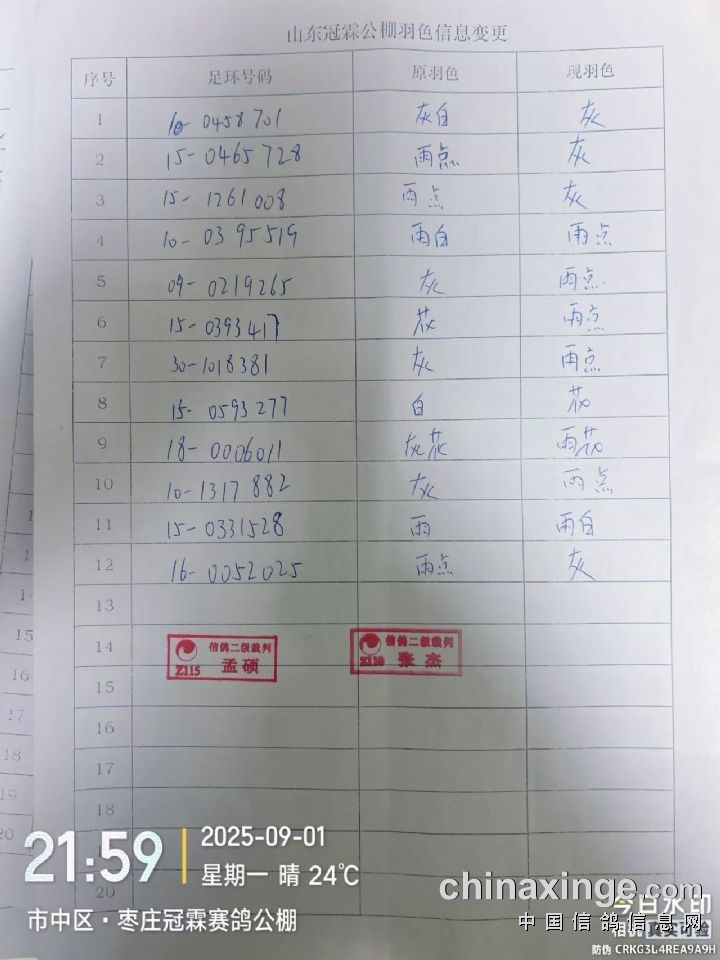 山东冠霖公棚羽色信息变更
序号 足环号码 原羽色 现羽色
1 10-0458701 灰白 灰
2 15-0465728 雨点 灰
3 15-1261008 雨点 灰
4 10-0395519 雨白 雨点
5 09-0219265 灰 雨点
6 15-0393417 花 雨点
7 30-1018381 灰 雨点
8 15-0593277 白 花
9 18-0006011 灰花 雨花
10 10-1317882 灰 雨点
11 15-0331528 雨 雨白
12 16-0052025 雨点 灰
13
14
信鸽二级裁判 信鸽二级裁判
Z115 孟硕 Z110 张杰
15
16
17
18
20
15
16
17
18
19
20
21:59
2025-09-01
星期一 晴 24℃
市中区·枣庄冠霖赛鸽公棚
chinaxinge.com
中国信鸽信息网
今日水印
相机 真实可验
防伪 CRKG3L4REA9A9H